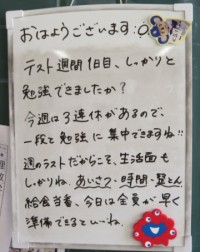 おはようございます:)
テスト週間1日目、しっかりと
勉強できましたか?
今週は3連休があるので、
一段と勉強に集中できますね!!
週のラストだからこそ、生活面も
しっかりね。あいさつ・時間・整とん
給食当番、今日は全員が早く
準備できるといーね。